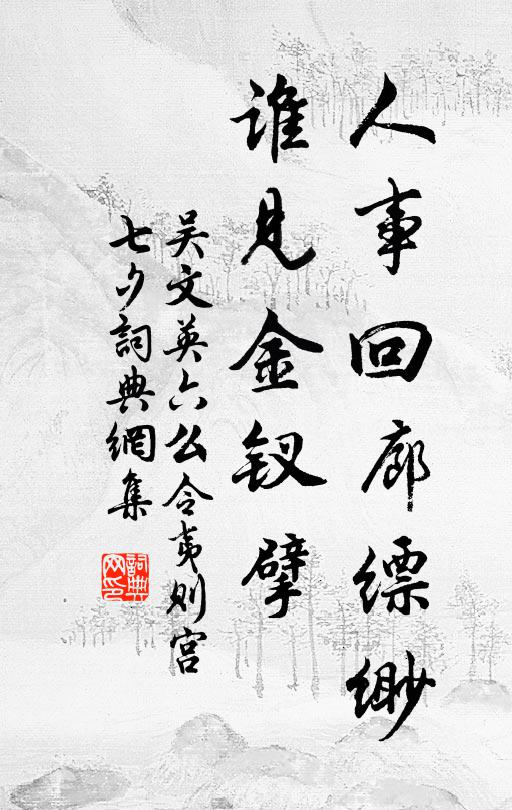 人事回廊缥缈
谁见金钗擘
吴文英六么令夷则宫
七夕詞典網集
詞典网印